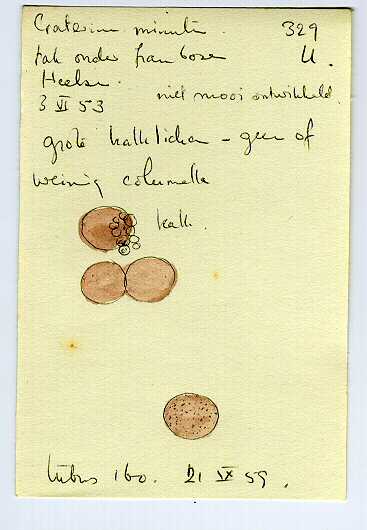 Craterium minut. 329
tak onder framboze U.
Heelsum.
3 VI 53 niet mooi ontwikkeld.
grote kalklichen - geen of
weinig columella
kalk.
tubus 160. 21 IX 59.